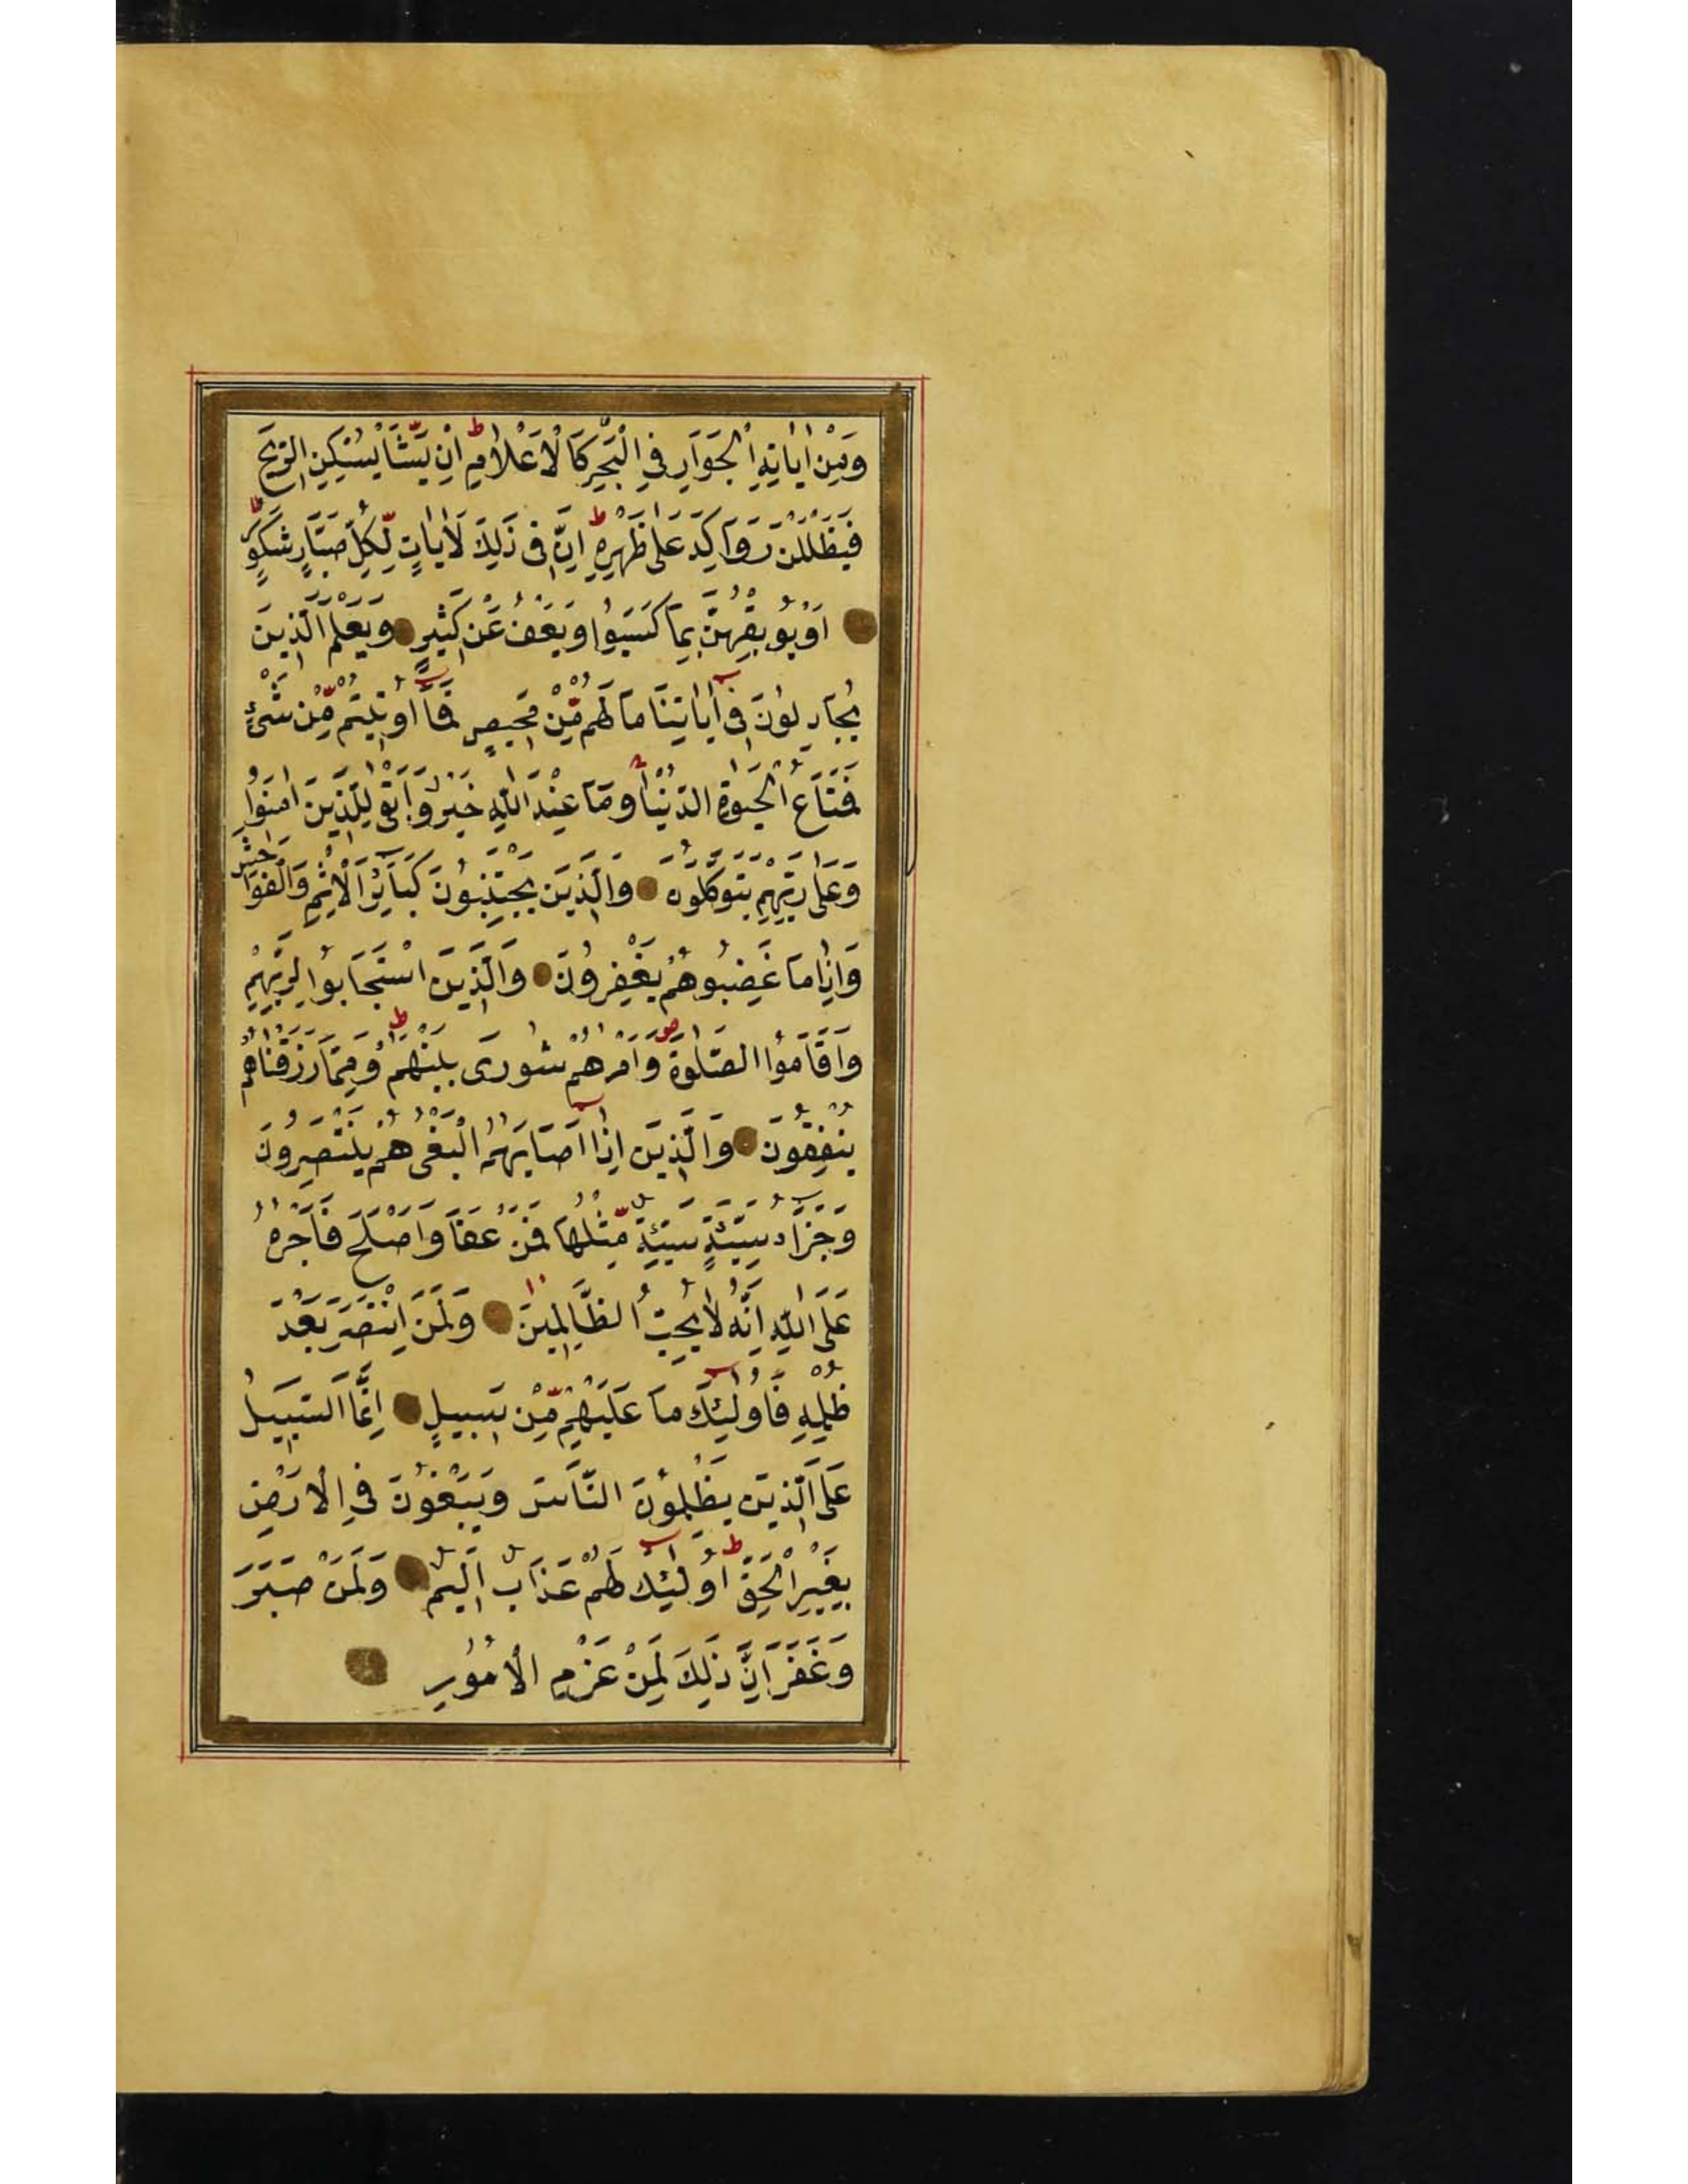 وَمِنْ اٰيَاتِهِ الْجَوَارِ فِي الْبَحْرِ كَالْاَعْلَامِ اِنْ يَّشَأْ يُسْكِنِ الرِّيحَ
فَيَظْلَلْنَ رَوَاكِدَ عَلَى ظَهْرِهِ اِنَّ فِى ذٰلِكَ لَاٰيَاتٍ لِّكُلِّ صَبَّارٍ شَكُورٍ
اَوْ يُوبِقْهُنَّ بِمَا كَسَبُوا وَيَعْفُ عَنْ كَثِيرٍ وَيَعْلَمَ الَّذِينَ
يُجَادِلُونَ فِى اٰيَاتِنَا مَا لَهُمْ مِّنْ مَحِيصٍ فَمَا اُوتِيتُمْ مِّنْ شَىْءٍ
فَمَتَاعُ الْحَيٰوةِ الدُّنْيَا وَمَا عِنْدَ اللّٰهِ خَيْرٌ وَاَبْقٰى لِلَّذِينَ اٰمَنُوا
وَعَلٰى رَبِّهِمْ يَتَوَكَّلُونَ وَالَّذِينَ يَجْتَنِبُونَ كَبَائِرَ الْاِثْمِ وَالْفَوَاحِشَ
وَاِذَا مَا غَضِبُوا هُمْ يَغْفِرُونَ وَالَّذِينَ اسْتَجَابُوا لِرَبِّهِمْ
وَاَقَامُوا الصَّلٰوةَ وَاَمْرُهُمْ شُورَى بَيْنَهُمْ وَمِمَّا رَزَقْنَاهُمْ
يُنْفِقُونَ وَالَّذِينَ اِذَا اَصَابَهُمُ الْبَغْىُ هُمْ يَنْتَصِرُونَ
وَجَزَاءُ سَيِّئَةٍ سَيِّئَةٌ مِّثْلُهَا فَمَنْ عَفَا وَاَصْلَحَ فَاَجْرُهُ
عَلَى اللّٰهِ اِنَّهُ لَا يُحِبُّ الظَّالِمِينَ وَلَمَنِ انْتَصَرَ بَعْدَ
ظُلْمِهِ فَاُولٰئِكَ مَا عَلَيْهِمْ مِّنْ سَبِيلٍ اِنَّمَا السَّبِيلُ
عَلَى الَّذِينَ يَظْلِمُونَ النَّاسَ وَيَبْغُونَ فِي الْاَرْضِ
بِغَيْرِ الْحَقِّ اُولٰئِكَ لَهُمْ عَذَابٌ اَلِيمٌ وَلَمَنْ صَبَرَ
وَغَفَرَ اِنَّ ذٰلِكَ لَمِنْ عَزْمِ الْاُمُورِ